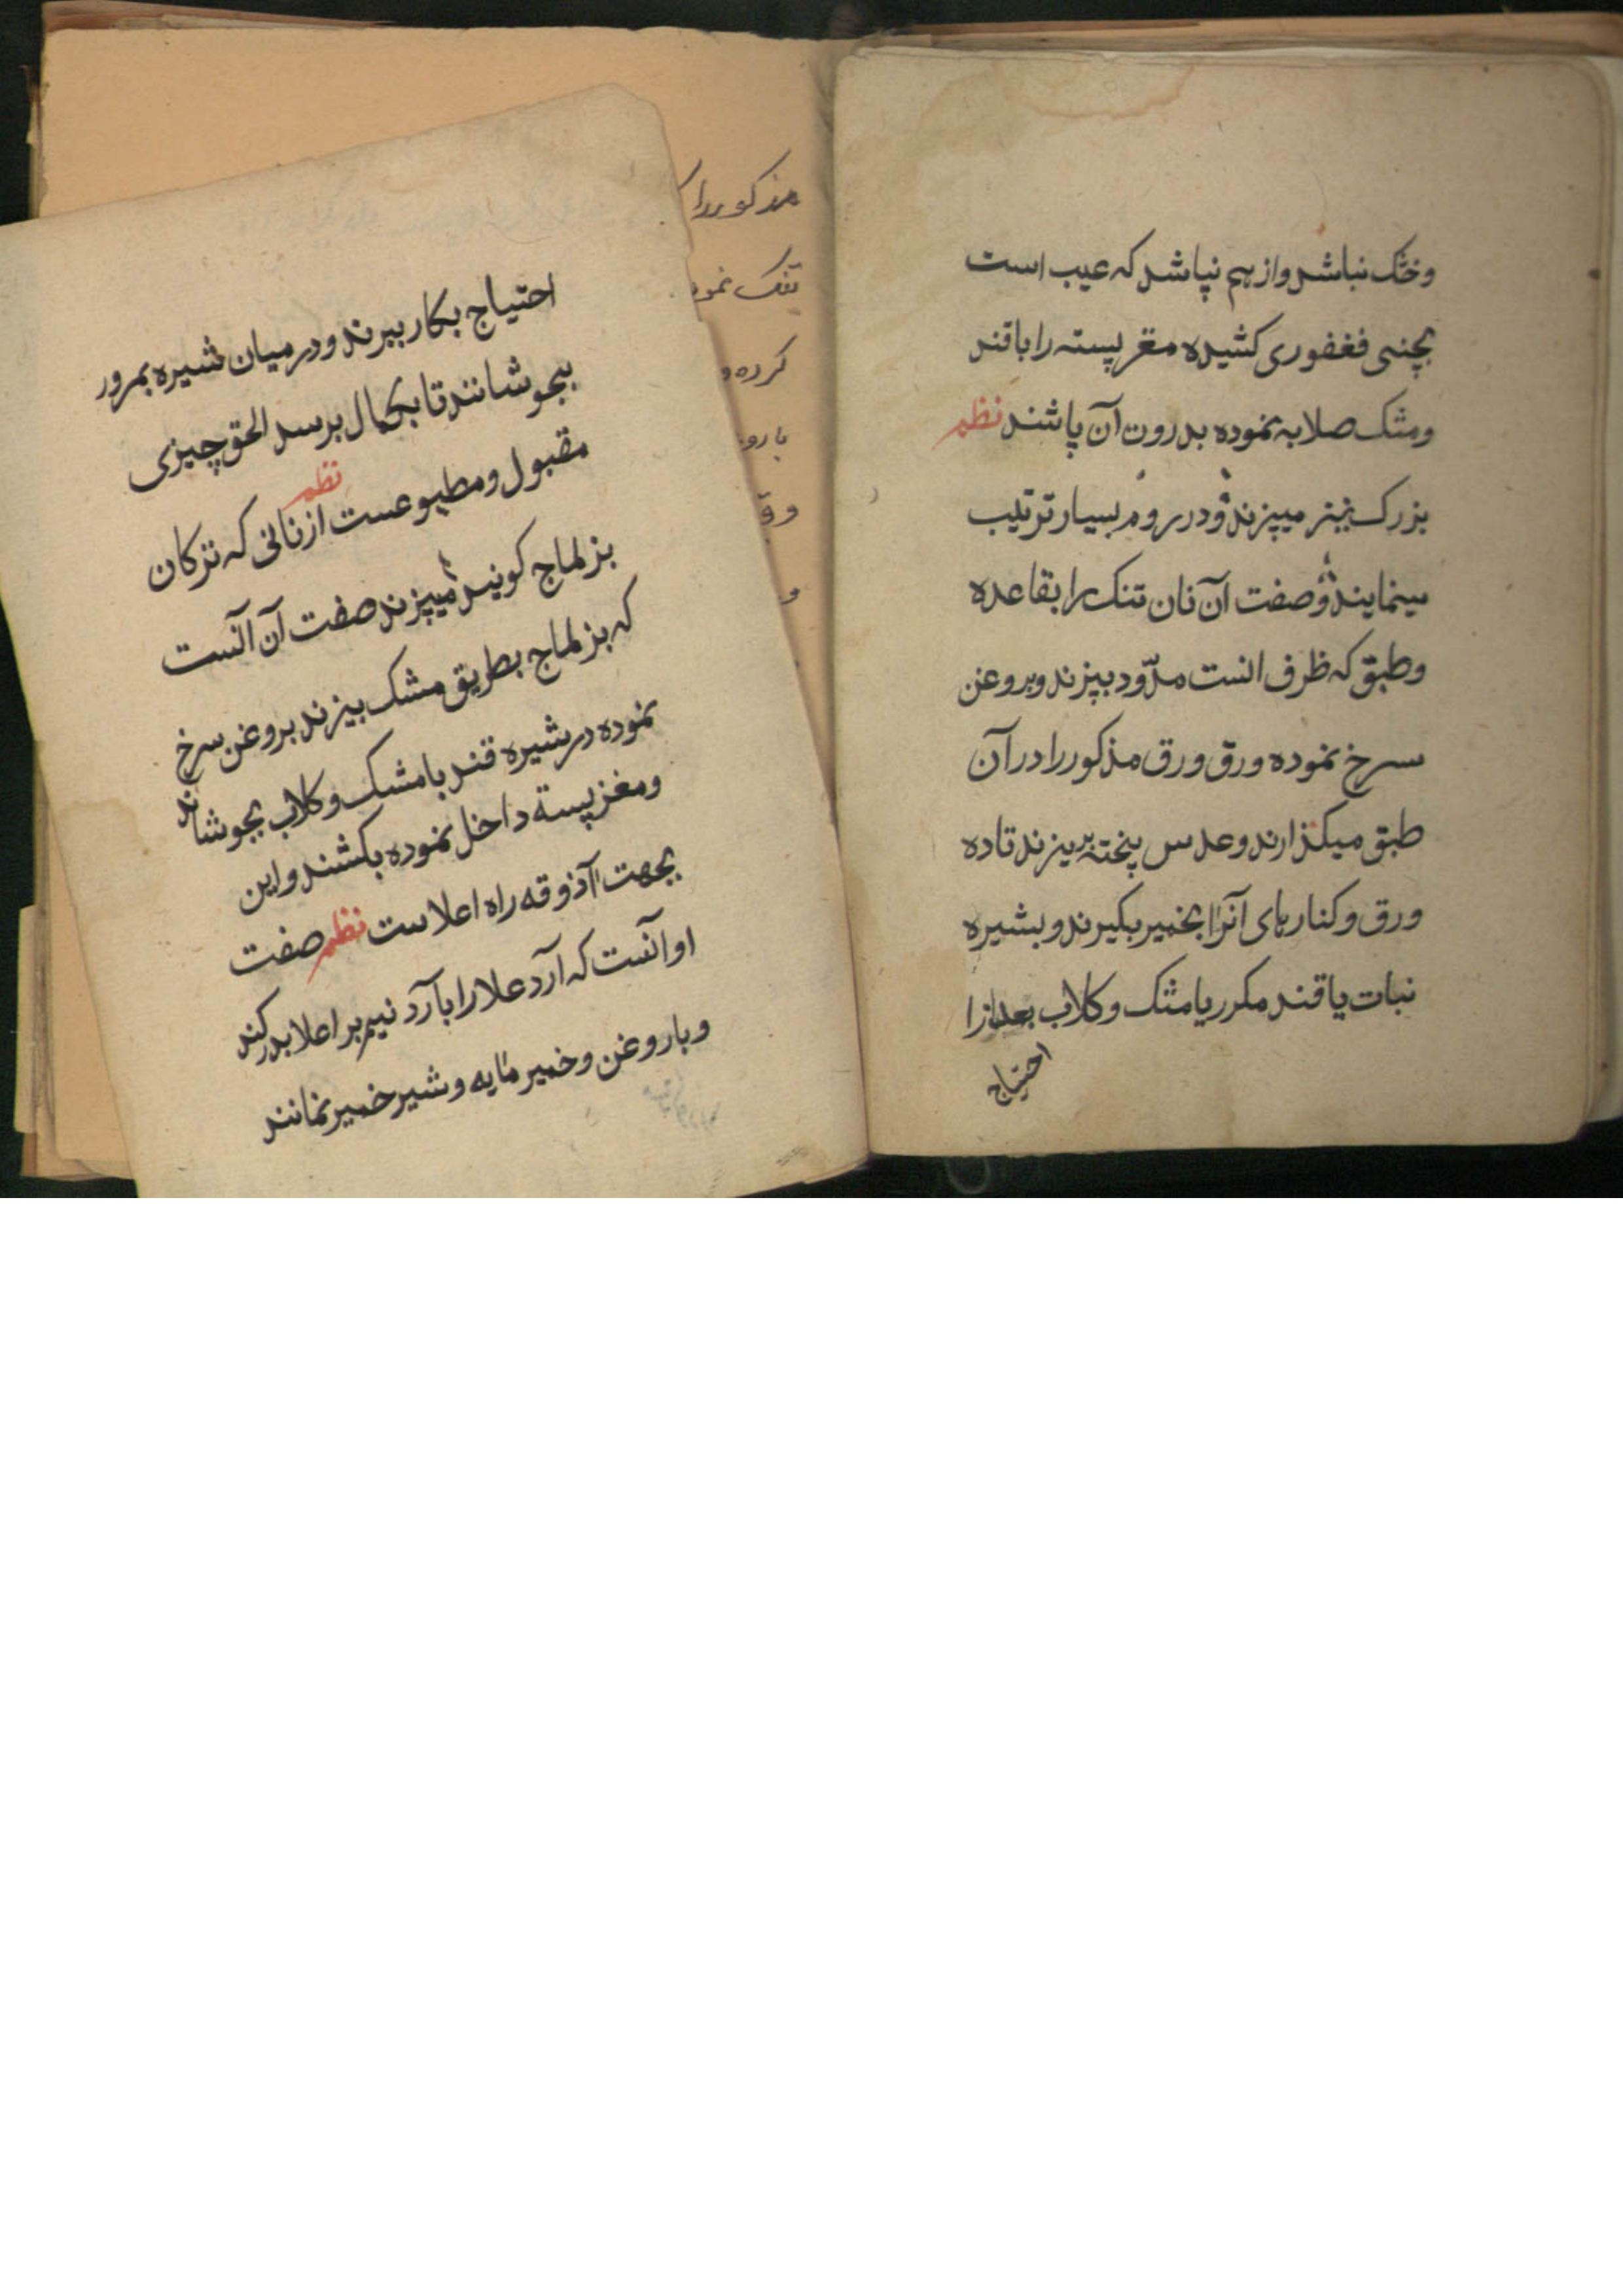 وخشک نباشد واز هم نپاشد که عیب است
بچنی فغفوری کشیده مغز پسته را باقند
ومشک صلابه نموده بدروت آن پاشند نظم
بزرک نیز میپزند ودر روم بسیار ترتیب
مینمایند وصفت آن نان تنک را بقاعده
وطبق که ظرف انست مدّور بپزند وبروغن
سرخ نموده ورق ورق مذکور را در آن
طبق میکذارند وعدس پخته بریزند تا ده
ورق وکنار های آنرا بخمیر بکیرند وبشیره
نبات یا قند مکرر یا مشک وکلاب بعد ازا
احتیاج
احتیاج بکار ببرند ودر میان شیره بمرور
بجوشانند تا بکمال برسد الحق چیزی
مقبول ومطبوعست از نانی که ترکان
نظم
بزلماج کویند میپزند صفت آن آنست
که بزلماج بطریق مشک بیزند بروغن سرخ
نموده در شیره قند با مشک وکلاب بجوشاند
ومغز پسته داخل نموده بکشند واین
بجهت آذوقه راه اعلاست نظم صفت
او آنست که آرد علا را با آرد نیم بر اعلا بدر کند
وبا روغن وخمیر مایه وشیر خمیر نمانند
مذکور را
تنک نمو
کرده و
با رو
وق
و